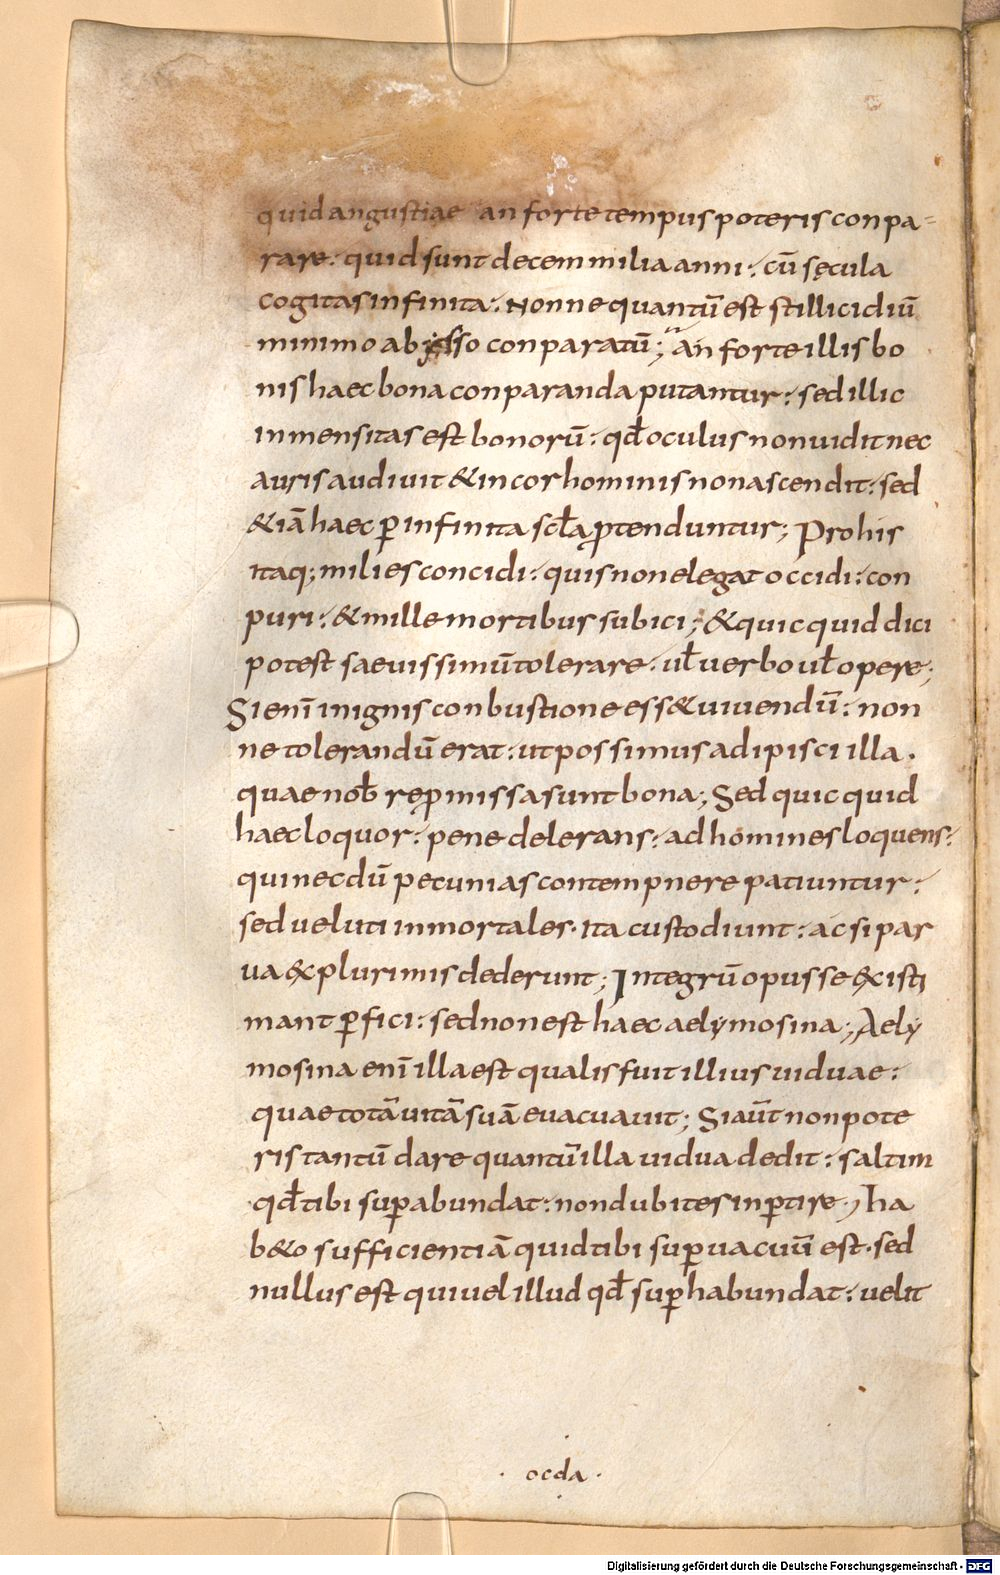 quid angustiae an forte tempus poteris conpa-
rare. quid sunt decem milia anni. cū sęcula
cogitas infinita. Nonne quantū est stillicidiū
minimo abysso conparatū; an forte illis bo
nis haec bona conparanda putantur. sed illic
inmensitas est bonorū. qđ oculus non uidit nec
auris audiuit & in cor hominis non ascendit. sed
& iā haec ꝑ infinita scła ꝓtenduntur; Pro his
itaq; milies concidi. quis non elegat occidi. con
puri. & mille mortibus subici; & quicquid dici
potest saeuissimū tolerare. uł uerbo uł opere;
Si enī in ignis conbustione ess& uiuendū. non
ne tolerandū erat. ut possimus adipisci illa.
quae nob̄ reꝓmissa sunt bona; Sed quicquid
haec loquor. pene delerans. ad homines loquens.
qui necdū pecunias contempnere patiuntur.
sed ueluti inmortales. ita custodiunt. ac si par
ua & plurimis dederunt; Integrū opus se existi
mant ꝑfici. sed non est haec aelymosina; Aely
mosina enī illa est qualis fuit illius uiduae.
quae totā uitā suā euacuauit; Si aūt non pote
ris tantū dare quantū illa uidua dedit. saltim
qđ tibi suꝑabundat. non dubites inꝑtire; ha
b&o sufficientiā quid tibi suꝑuacuū est. sed
nullus est qui uel illud qđ suꝑhabundat. uelit
. ocda .
Digitalisierung gefördert durch die Deutsche Forschungsgemeinschaft - DFG